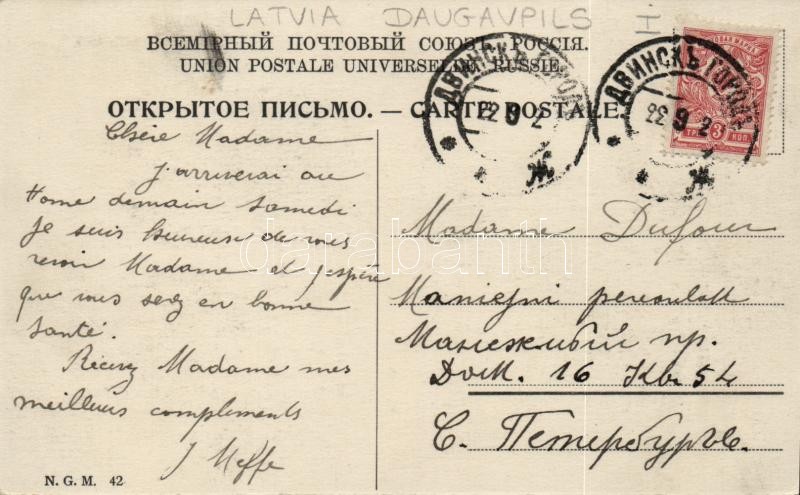 LATVIA DAUGAVPILS I
ВСЕМІРНЫЙ ПОЧТОВЫЙ СОЮЗЪ. РОССІЯ.
UNION POSTALE UNIVERSELLE. RUSSIE.
ОТКРЫТОЕ ПИСЬМО. — CARTE POSTALE.
ДВИНСКЪ
22 9 2
Ж
ДВИНСКЪ
22 9 2
Ж
3
КОП
Chère Madame
J'arriverai au
Home demain samedi
Je suis heureuse de vous
revoir Madame et j'espère
que vous serez en bonne
santé.
Recevez Madame mes
meilleurs compliments
Madame Dufour
Maniejni
Манежный пр.
Дом. 16 Кв 54
С. Петербургъ.
N. G. M. 42
darabanth